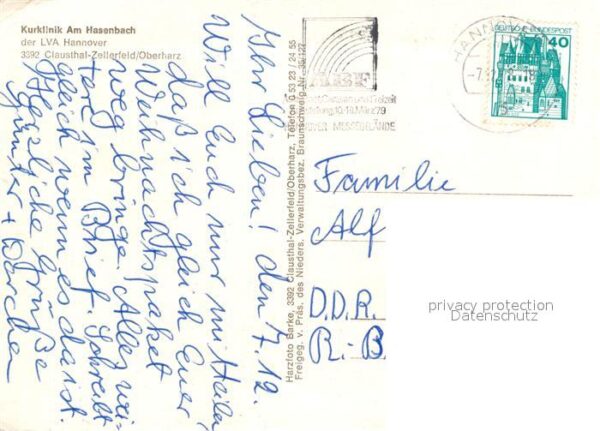 Kurklinik Am Hasenbach
der LVA Hannover
3392 Clausthal-Zellerfeld/Oberharz
Ihr Lieben! den 7.12.
Will Euch nur mitteilen
daß ich gleich Euer
Weihnachtspaket
weg bringe. Alles wei-
tere im Brief. Schreibt
gleich wenn es da ist.
Herzliche Grüße
Günter +
Harzfoto Barke, 3392 Clausthal-Zellerfeld/Oberharz, Telefon 0 53 23 / 24 55
Freigeg. v. Präs. des Nieders. Verwaltungsbez. Braunschweig Nr.
HANNOVER
-7.12
10.-18. März 79
MESSEGELÄNDE
DEUTSCHE BUNDESPOST
40
Familie
Alf
D.D.R.
R.-B.
privacy protection
Datenschutz